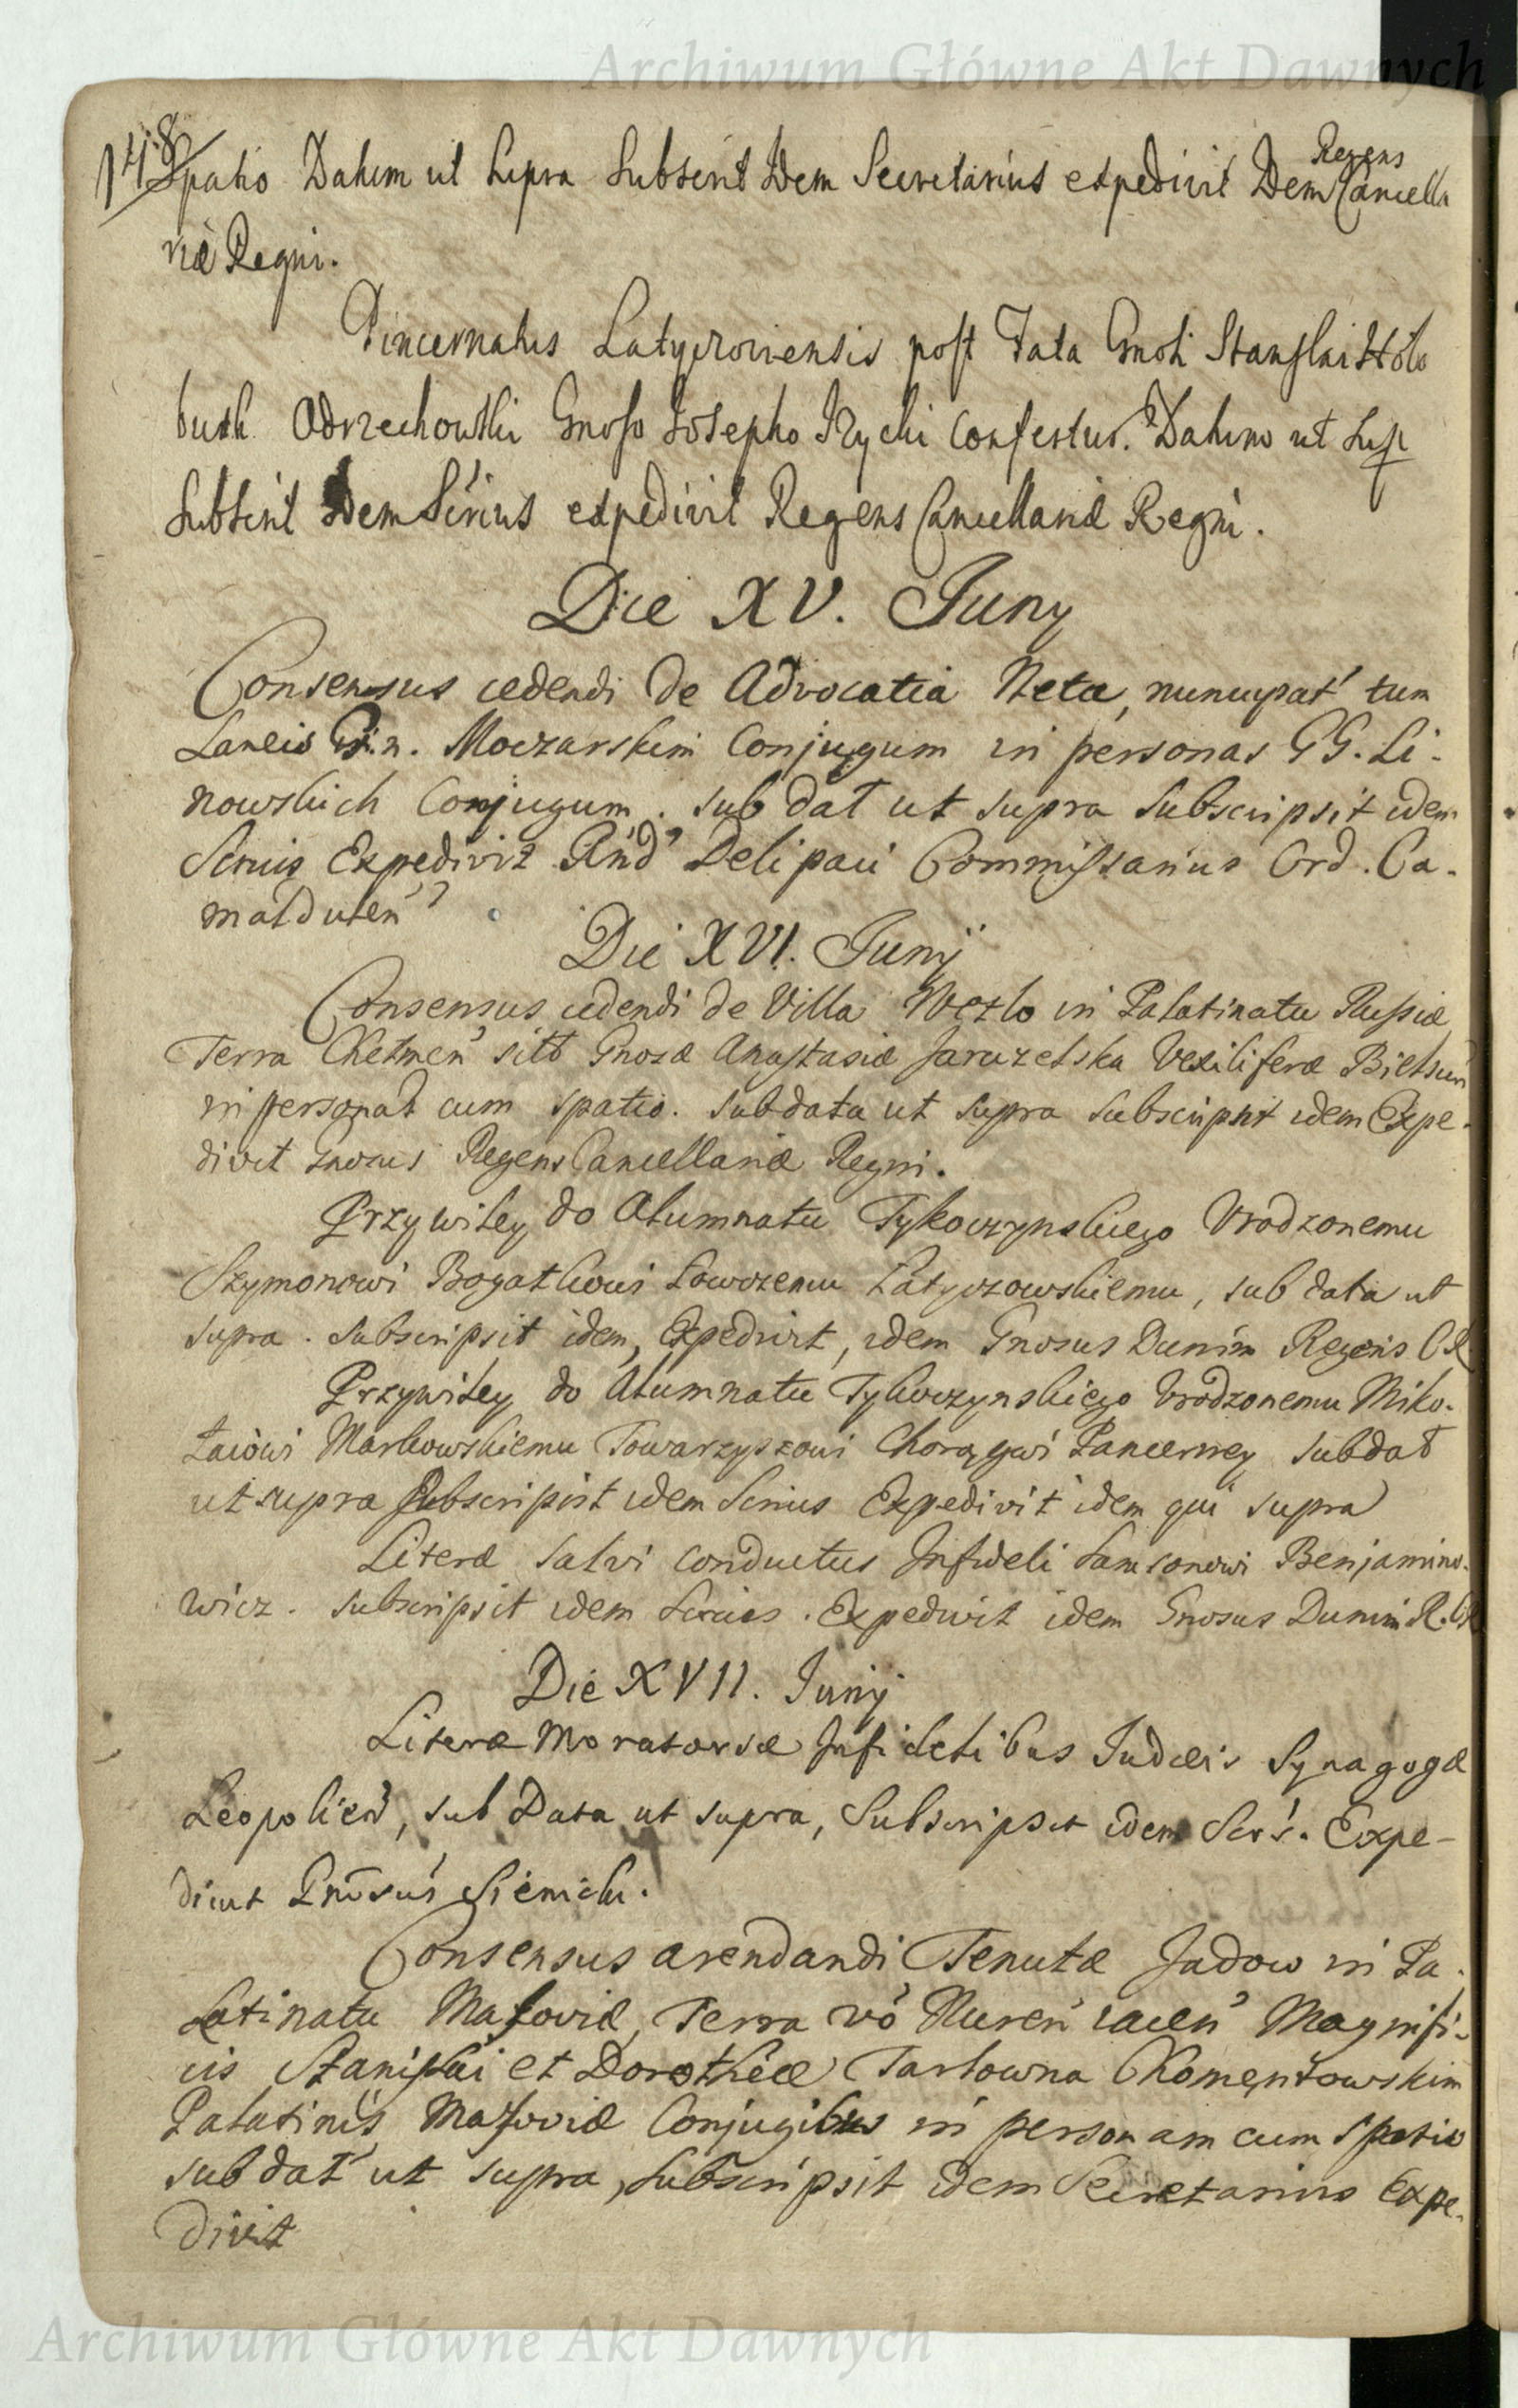 Archiwum Główne Akt Dawnych
148
Spatio Datum ut supra Subscrit Idem Secretarius expedivit Idem Regens Cancella
riæ Regni.
Pincernatus Latyczoviensis post Fata Gnosi Stanislai Holo
bush Odrzechowski Gnoso Josepho Jżycki Confertur. Datum ut Sup
Subscrit Idem Scrius expedivit Regens Cancellariæ Regni.
Die XV. Juny
Consensus cedendi de Advocatia Neta, nuncupat' tum
Laneis Moczarskim Conjugum in personas GG. Li-
nowskich Conjugum. sub dat ut supra Subscripsit idem
Scrius Expedivit Rnd' Delipaci Commissarius Ord. Ca-
maldulen'
Die XVI. Junij
Consensus cedendi de Villa in Palatinatu Russiæ
Terra Chelmen' sitt Gnosæ Anastasiæ Jaruzelska Vexiliferæ Bielscen'
in personat cum spatio. sub data ut supra subscripsit idem Expe-
divit Gnosus Regens Cancellariæ Regni.
Przywiley do Alumnatu Tykoczynskiego Vrodzonemu
Szymonowi Bogatkowi Łowczemu Latyczowskiemu, sub data ut
supra. subscripsit idem, Expedivit, idem Gnosus Dunin Regens CR
Przywiley do Alumnatu Tykoczynskiego Vrodzonemu Miko-
łaiowi Markowskiemu Towarzyszowi Chorągwi Pancerney sub dat
ut supra Subscripsit idem Scrius Expedivit idem qui supra
Literæ salvi conductus Infideli Samsonowi Benjamino-
wicz. subscripsit idem Scrius. Expedivit idem Gnosus Dunin R. CR
Die XVII. Junij
Literæ Moratoriæ Infidelibus Iudæis Synagogæ
Leopolien', sub Data ut supra, Subscripsit idem Scrs. Expe-
divit Gnosus Sienicki.
Consensus arendandi Tenutæ Jadow in Pa-
latinatu Masoviæ, Terra vo' Nuren' iacen' Magnifi-
cis Stanislai et Dorotheæ Tarłowna Chomentowskim
Palatinis Masoviæ Conjugibus in personam cum spatio
sub dat' ut supra, subscripsit idem Secretarius Expe-
divit
Archiwum Główne Akt Dawnych